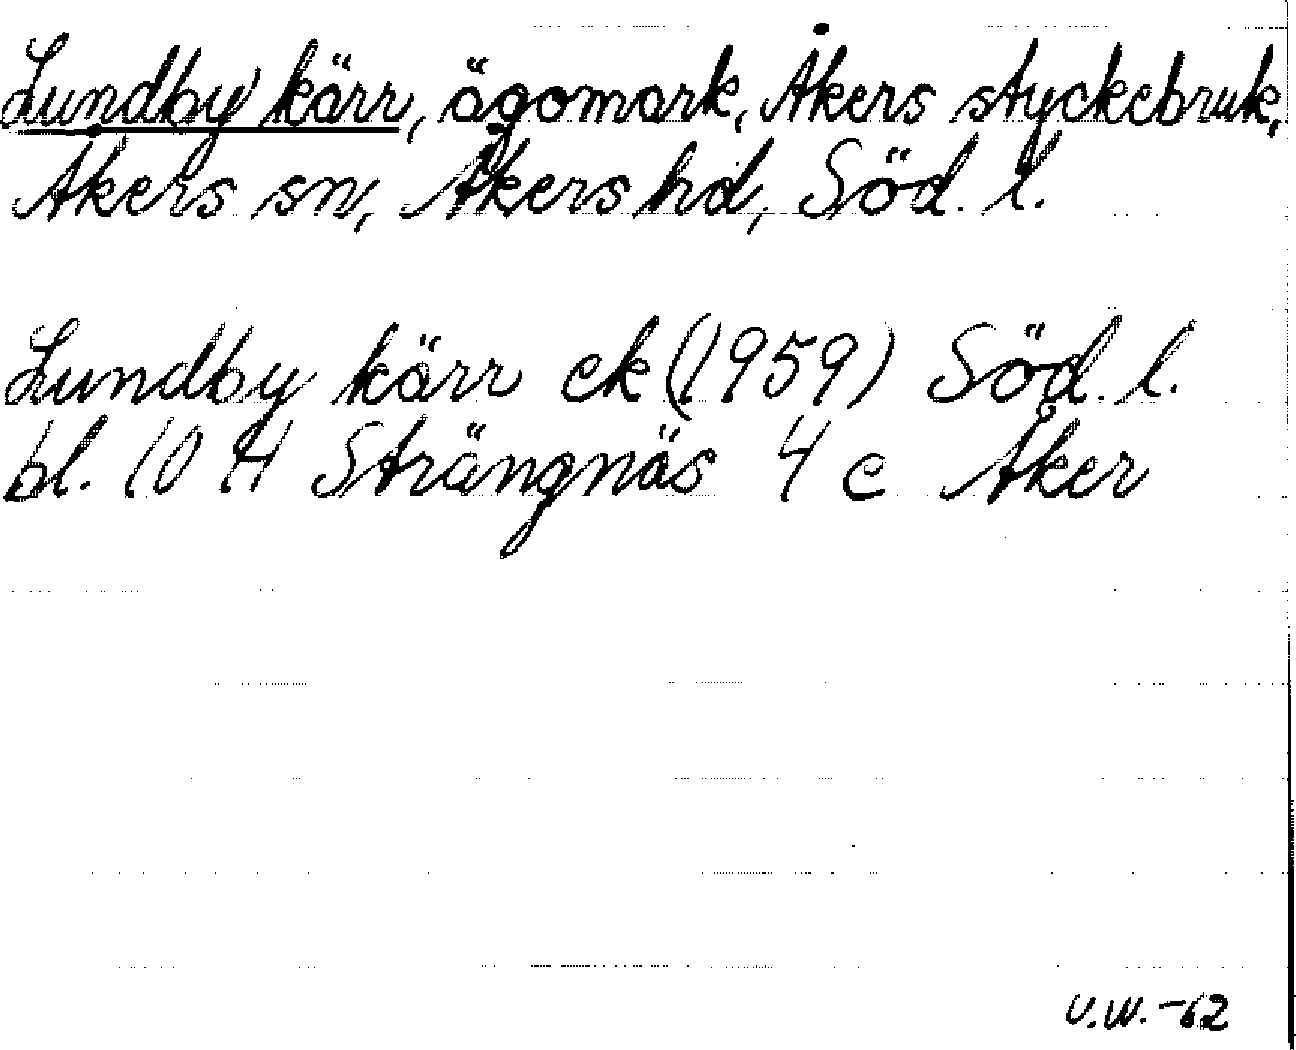 Lundby kärr, ägomark, Åkers styckebruk,
Åkers sn, Åkers hd, Söd. l.
Lundby kärr ek (1959) Söd. l.
bl. 10 H Strängnäs 4 c Åker
U.W. -62